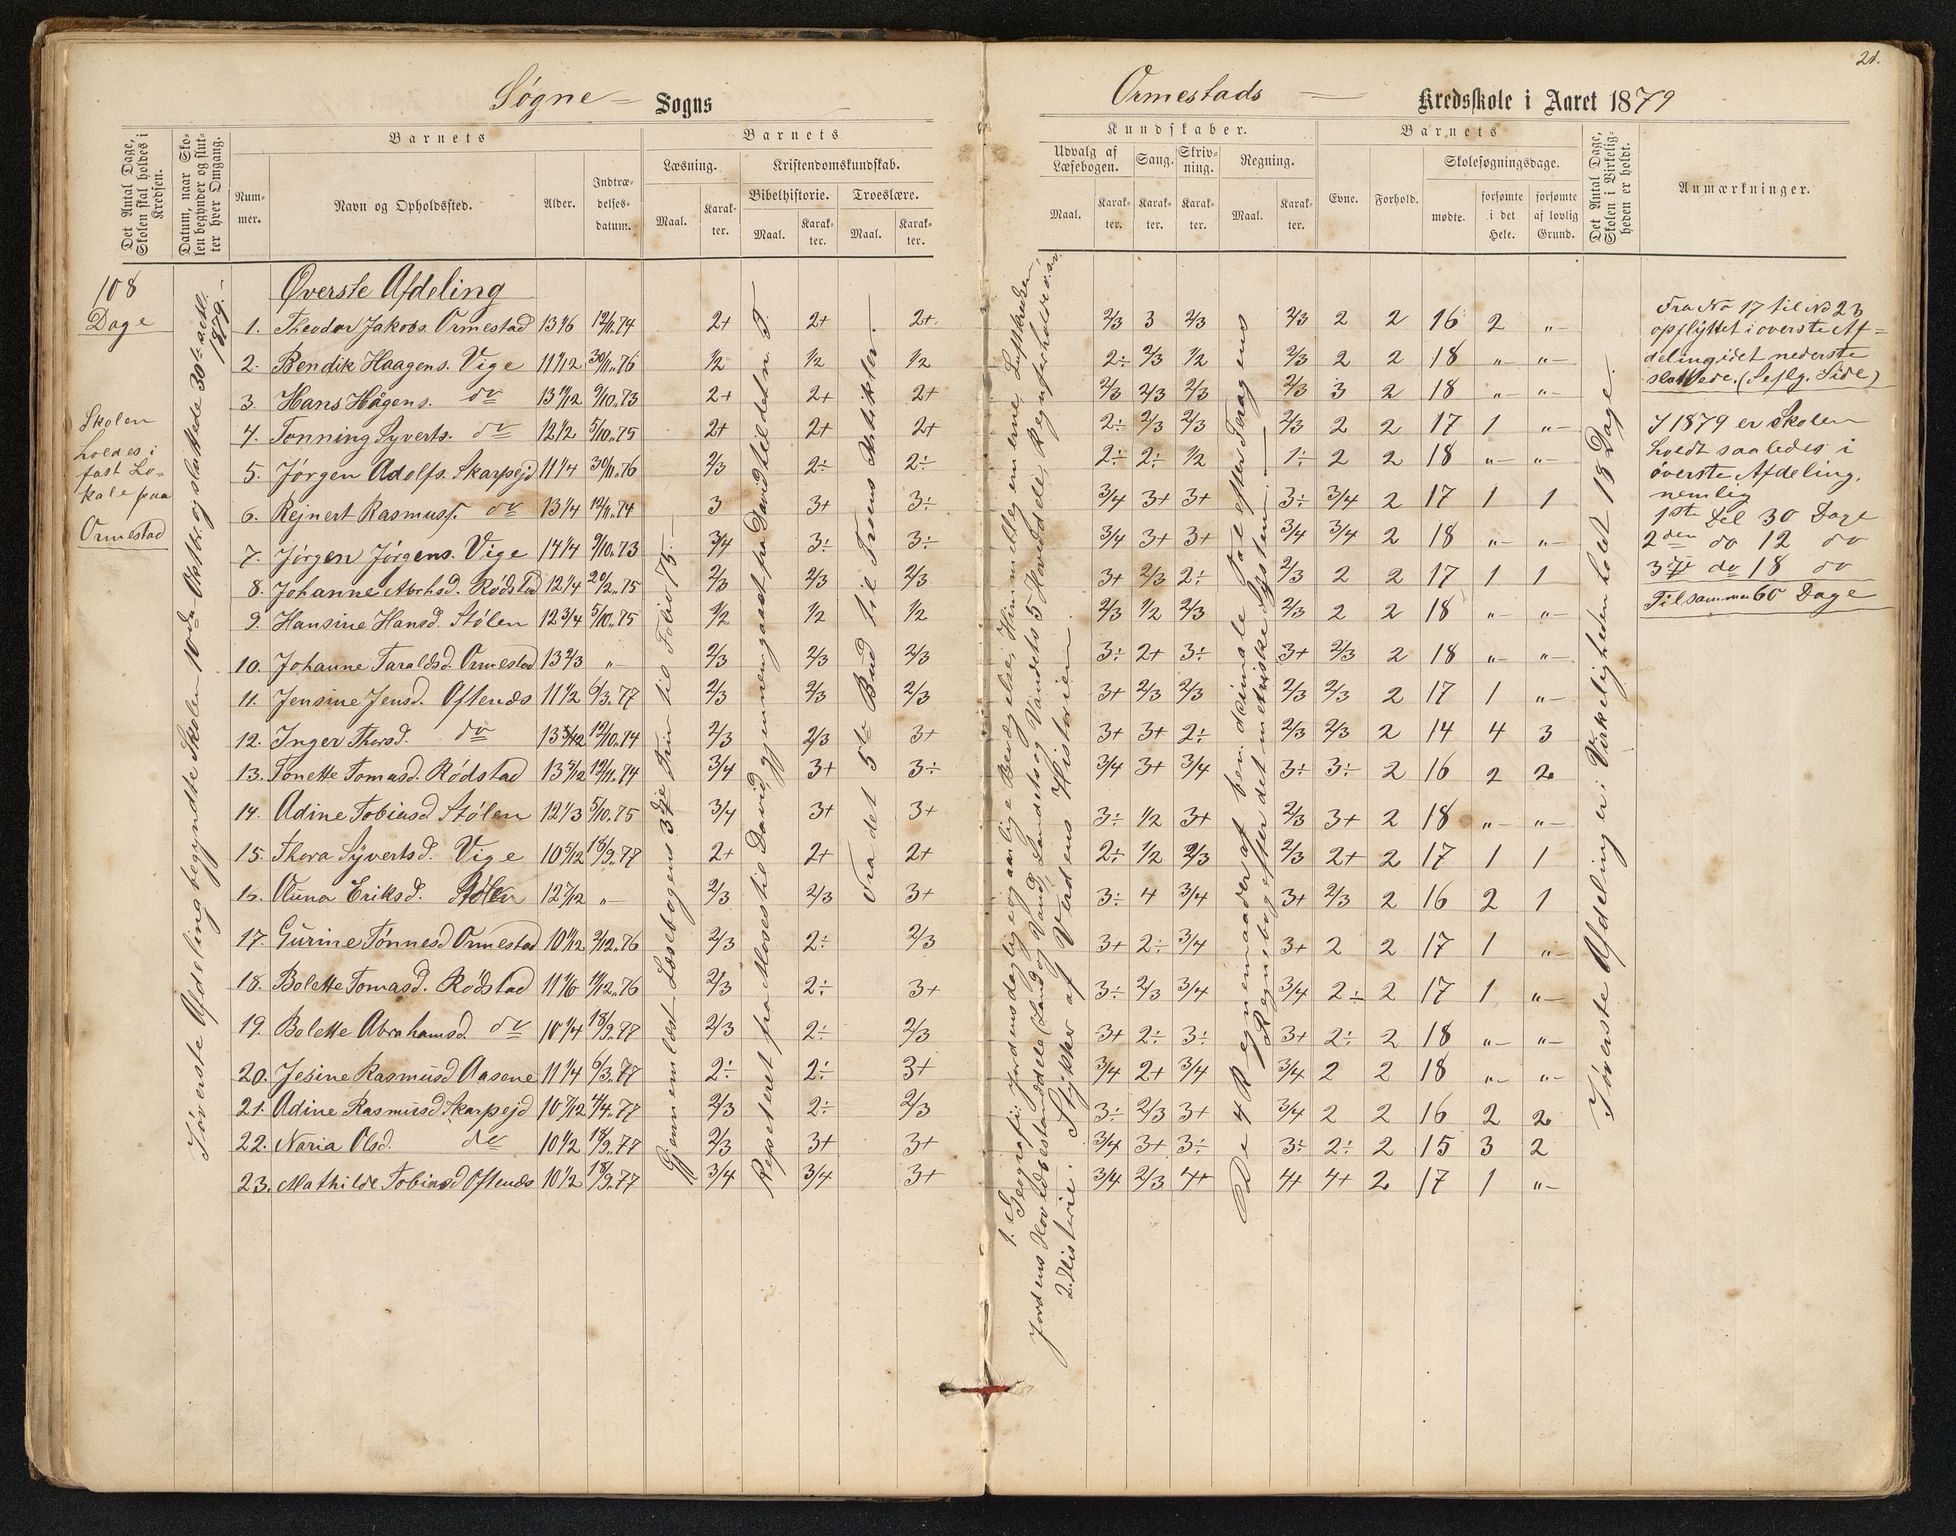 21.
Søgne Sogns
Ormestads Kredsskole i Aaret 1879
Det Antal Dage, Skolen skal holdes i Kredsen.
Datum, naar Skolen begynder og slutter hver Omgang.
Barnets
Nummer.
Navn og Opholdssted.
Alder.
Indtrædelsesdatum.
Barnets
Læsning.
Maal.
Karakter.
Kristendomskundskab.
Bibelhistorie.
Maal.
Karakter.
Troeslære.
Maal.
Karakter.
Kundskaber.
Udvalg af Læsebogen.
Maal.
Karakter.
Sang.
Karakter.
Skrivning.
Karakter.
Regning.
Maal.
Karakter.
Barnets
Evne.
Forhold.
Skolesøgningsdage.
mødte.
forsømte i det Hele.
forsømte af lovlig Grund.
Det Antal Dage, Skolen i Virkeligheden er holdt.
Anmærkninger.
108
Dage
Skolen
holdes i
fast Lo-
kale paa
Ormestad
I øverste Afdeling begyndte Skolen 10de Oktbr. og sluttede 30te
1879.
Øverste Afdeling
1. Theodor Jakobs. Ormestad 13 1/6 12/11.74 2+ 2+ 2+ 2/3 3 2/3 2/3 2 2 16 2 "
2. Bendik Haagens. Vige 11 1/12 30/11.76 1/2 1/2 1/2 2÷ 2/3 1/2 2/3 2 2 18 " "
3. Hans Hågens. do 13 11/12 9/10.73 2+ 2+ 2+ 2/3 2/3 2/3 2/3 3 2 18 " "
4. Tønning Syverts. do 12 1/2 5/10.75 2+ 2+ 2+ 2÷ 2/3 2/3 2/3 2 2 17 1 "
5. Jørgen Adolfs. Skarpejd 11 1/4 30/11.76 2/3 2÷ 2÷ 2÷ 2÷ 1/2 1÷ 2 2 18 " "
6. Rejnert Rasmuss. do 13 1/4 12/11.74 3 3+ 3÷ 3/4 3+ 3+ 3÷ 3/4 2 17 1 1
7. Jørgen Jørgens. Vige 14 1/4 9/10.73 3/4 3÷ 3÷ 3/4 3+ 3+ 3/4 3/4 2 18 " "
8. Johanne Abrhsd. Rødstad 12 1/4 20/2.75 2/3 2/3 2/3 3+ 2/3 2÷ 2/3 2 2 17 1 1
9. Hansine Hansd. Stølen 12 3/4 5/10.75 1/2 1/2 1/2 2/3 1/2 2/3 2/3 2 2 18 " "
10. Johanne Taraldsd. Ormestad 13 2/3 " 2/3 2/3 2/3 3÷ 2+ 3÷ 3+ 2/3 2 18 " "
11. Jensine Jensd. Oftenæs 11 1/2 6/3.77 2/3 2/3 2/3 3+ 2/3 2/3 2/3 2/3 2 17 1 "
12. Inger Thorsd. do 13 5/12 12/10.74 2/3 2/3 3+ 3+ 3+ 2÷ 2/3 2/3 2 14 4 3
13. Tonette Tomasd. Rødstad 13 5/12 12/11.74 3/4 3+ 3÷ 3/4 3+ 3/4 3÷ 3÷ 2 16 2 2
14. Adine Tobiasd Stølen 12 1/3 5/10.75 3/4 3+ 3+ 3÷ 1/2 3+ 2/3 3+ 2 18 " "
15. Thora Syvertsd. Vige 10 5/12 18/9.77 2+ 2+ 2+ 2÷ 1/2 2/3 2/3 2+ 2 17 1 1
16. Anna Eriksd. Stølen 12 7/12 " 2/3 2/3 3+ 3÷ 4 3/4 3+ 2/3 2 16 2 1
17. Gurine Tønnesd Ormestad 10 11/12 2/12.76 2/3 2÷ 2/3 3+ 2÷ 3/4 3+ 2 2 17 1 "
18. Bolette Tomasd. Rødstad 11 1/6 1/12.76 2/3 2÷ 3+ 3÷ 2/3 3/4 3/4 2÷ 2 17 1 "
19. Bolette Abrahamsd. do 10 1/4 18/9.77 2/3 2÷ 2/3 3+ 2÷ 3÷ 3+ 2÷ 2 18 " "
20. Jesine Rasmusd Aasene 11 1/4 6/3.77 2÷ 2÷ 3+ 3/4 2+ 3/4 3/4 2 2 18 " "
21. Adine Rasmusd Skarpejd 10 7/12 4/4.77 2/3 2÷ 2/3 3÷ 2/3 3+ 3/4 2 2 16 2 2
22. Naria Olsd. do 10 1/2 18/9.77 2/3 3+ 3+ 3/4 3+ 3÷ 3÷ 2÷ 2 15 3 2
23. Mathilde Tobiasd Oftenæs 10 1/2 18/9.77 3/4 3/4 3+ 3/4 2/3 4+ 4+ 4+ 2 17 1 "
Gjenemlæst Læsebogens 3die Trin til Folio 75.
Repeteret fra Moses til David, gjennemgaaet fra David til
Fra det 5te Bud til Troens Artikler.
1. Geografi: Jordens daglige og aarlige Bevægelse, Himmellegemerne, Luftkredsen,
Jordens Hovedbestanddele (Land og Vand), Landets og Vandets 5 Hoveddele, Regnforholde o.s.v.
2. Historie: Stykker af Verdens Historien.
De 4 Regnemaader af ben. desimale Tal efter
Regnebog efter det metriske System.
I øverste Afdeling er i Virkeligheden holdt 18 Dage.
Fra No 17 til No 23
opflyttet i øverste Af-
deling idet nederste
sluttede. (Se flg. Side)
I 1879 er Skolen
holdt saaledes i
øverste Afdeling,
nemlig
1ste Del 30 Dage
2den do 12 do
3die do 18 do
Tilsammen 60 Dage